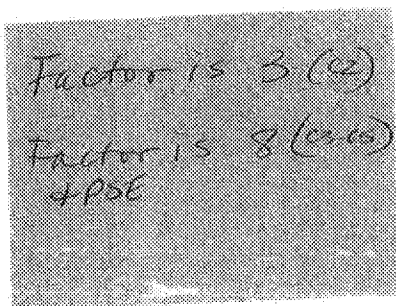 Factor is 3 (C2)
Factor is 8 (C3-C5)
+ PSE